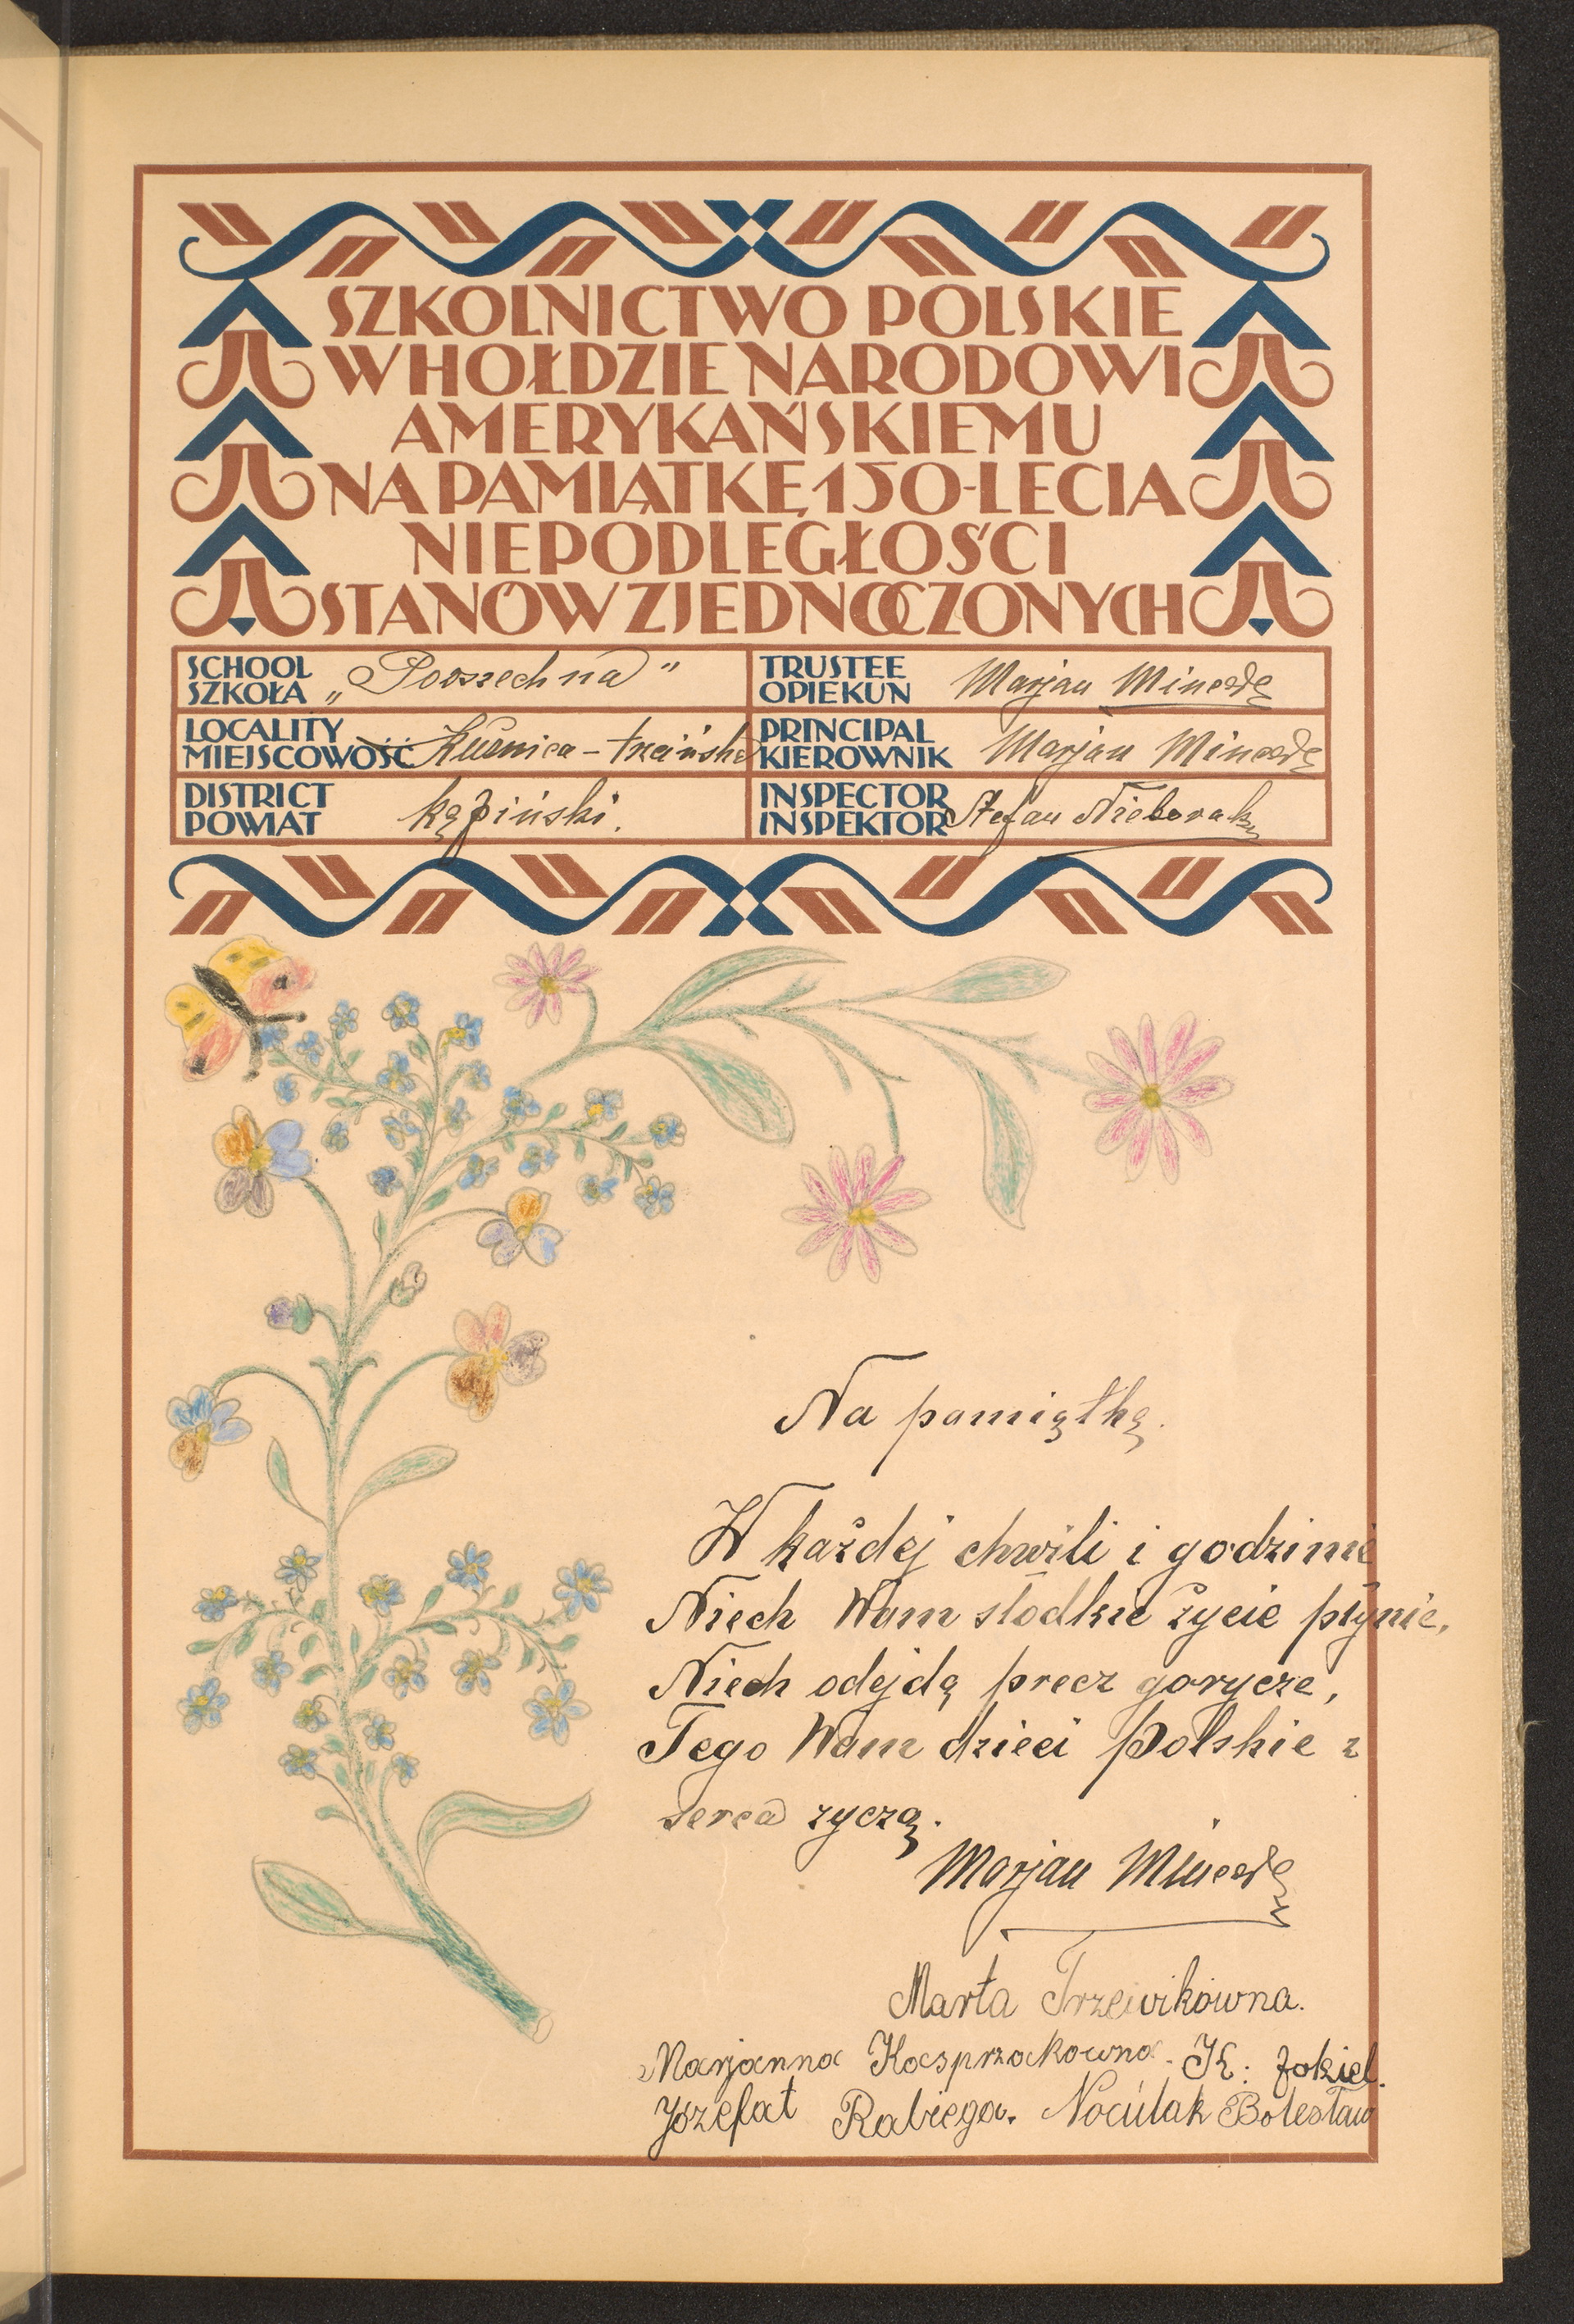 SZKOLNICTWO POLSKIE
W HOŁDZIE NARODOWI
AMERYKAŃSKIEMU
NA PAMIĄTKĘ 150-LECIA
NIEPODLEGŁOŚCI
STANÓW ZJEDNOCZONYCH
SCHOOL
SZKOŁA „Powszechna”
TRUSTEE
OPIEKUN Marjan
LOCALITY
MIEJSCOWOŚĆ Kuźnica - trcińska
PRINCIPAL
KIEROWNIK Marjan
DISTRICT
POWIAT kępiński.
INSPECTOR
INSPEKTOR Stefan Nieborak
Na pamiątkę.
W każdej chwili i godzinie
Niech Wam słodkie życie płynie,
Niech odejdą precz gorycze,
Tego Wam dzieci Polskie z
serca zyczą.
Marjan
Marta Trzewikówna.
Marjanna Kasprzakowna. K: Jokiel.
Józefat Rabiega. Nociulak Bolesław